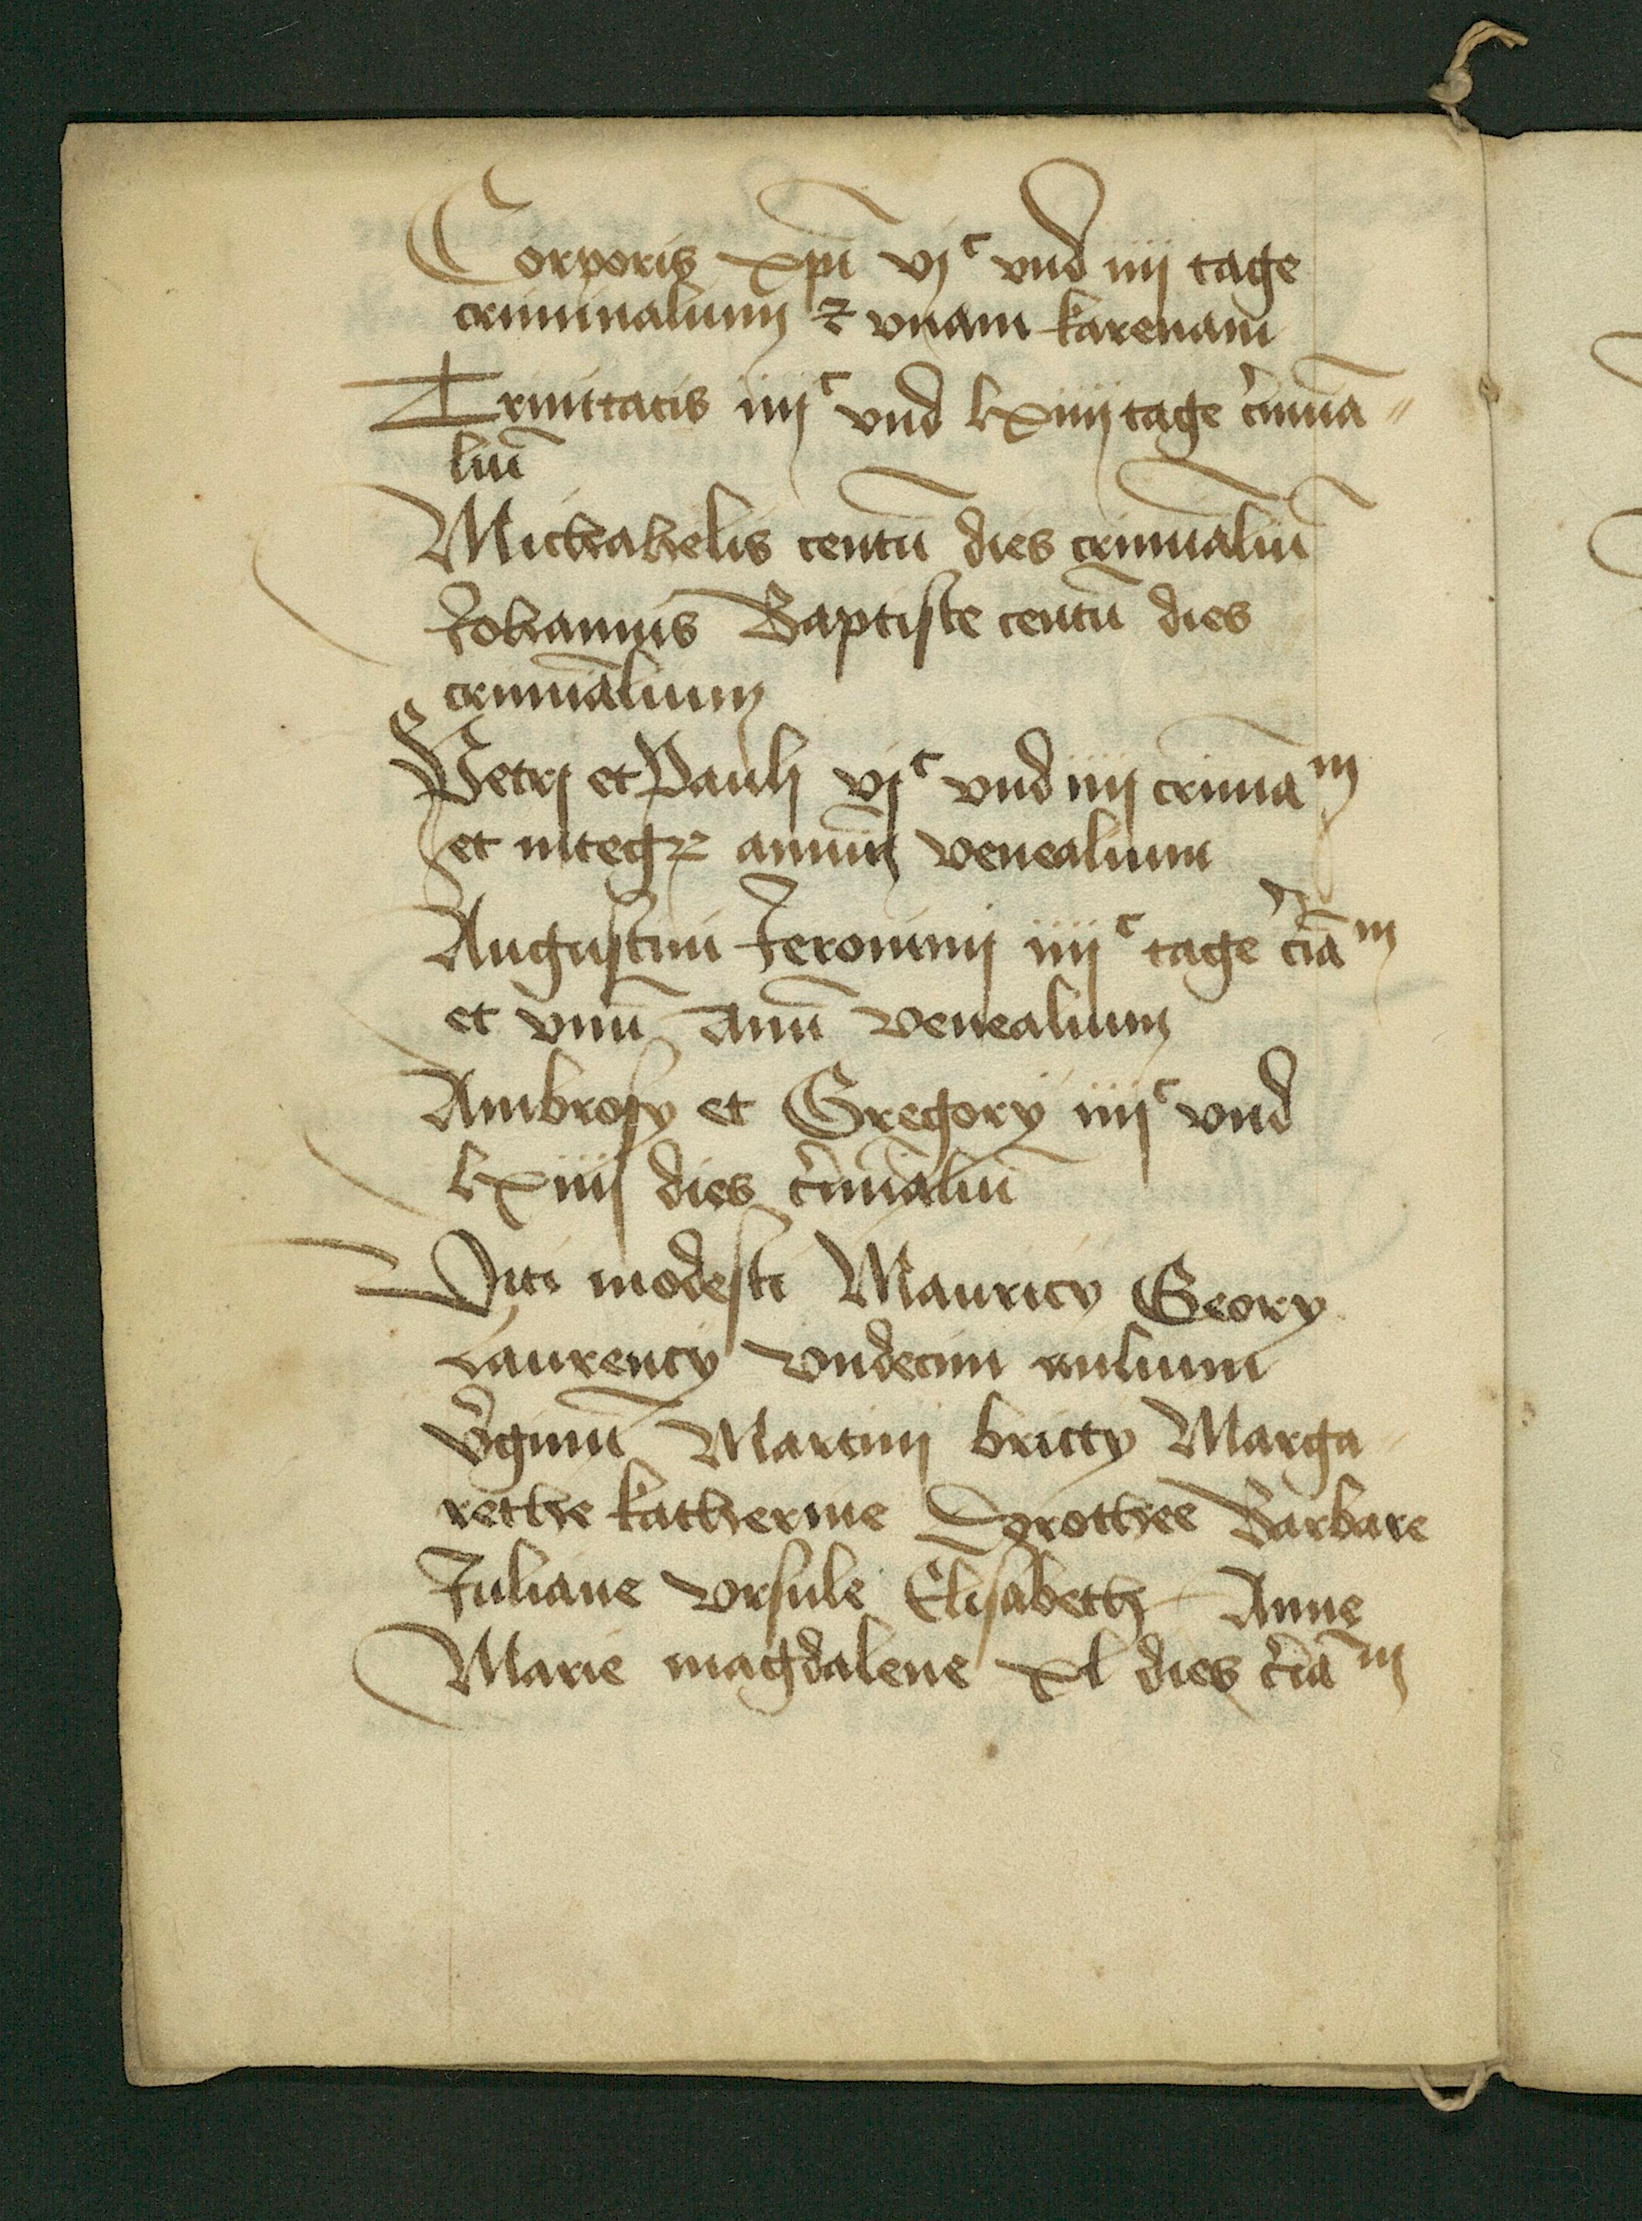 Corporis xp̄i vjᶜ vnd iiij tage
criminalium ⁊ vnam karenam
Trinitatis iiijᶜ vnd lxiiij tage c̓imina〃
liū
Michahelis centū dies criminaliū
Johannis Baptiste centū dies
criminalium
Petrj et Paulj vjᶜ vnd iiij criminaᵐ
et integꝝ annum venealium
Augustini Jeronimj iiijᶜ tage c̓iāᵐ
et vnū Annū venealium
Ambrosy et Gregory iiijᶜ vnd
lxiiij dies c̓iminaliū
Viti modesti Mauricy Geory
Laurency vndecim milium
v̓ginū Martinj bricty Marga
rethe katherine Dorothee Barbare
Juliane vrsule Elisabeth Anne
Marie magdalene xl dies c̓iāᵐ